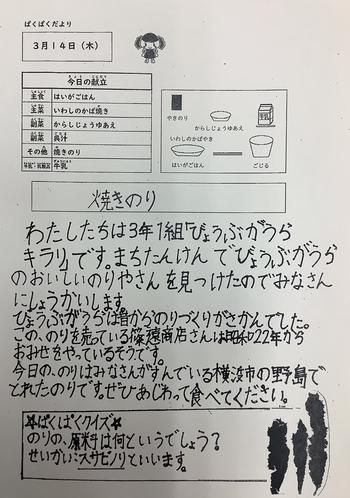 ぱくぱくだより
3月14日（木）
今日の献立
主食 はいがごはん
主菜 いわしのかば焼き
副菜 からしじょうゆあえ
副菜 呉汁
その他 焼きのり
牛乳・乳製品 牛乳
やきのり
からしじょうゆあえ
いわしのかばやき
はいがごはん
ごじる
焼きのり
わたしたちは3年1組「びょうぶがうら
キラリ」です。まちたんけんでびょうぶがうら
のおいしいのりやさんを見つけたのでみなさん
にしょうかいします。
びょうぶがうらは昔からのりづくりがさかんでした。
この、のりを売っている篠穂商店さんは昭和22年から
おみせをやっているそうです。
今日の、のりはみなさんがすんでいる横浜市の野島で
とれたのりです。ぜひあじわって食べてください。
☆ぱくぱくクイズ☆
のりの、原料は何というでしょう？
せいかい：スサビノリといいます。